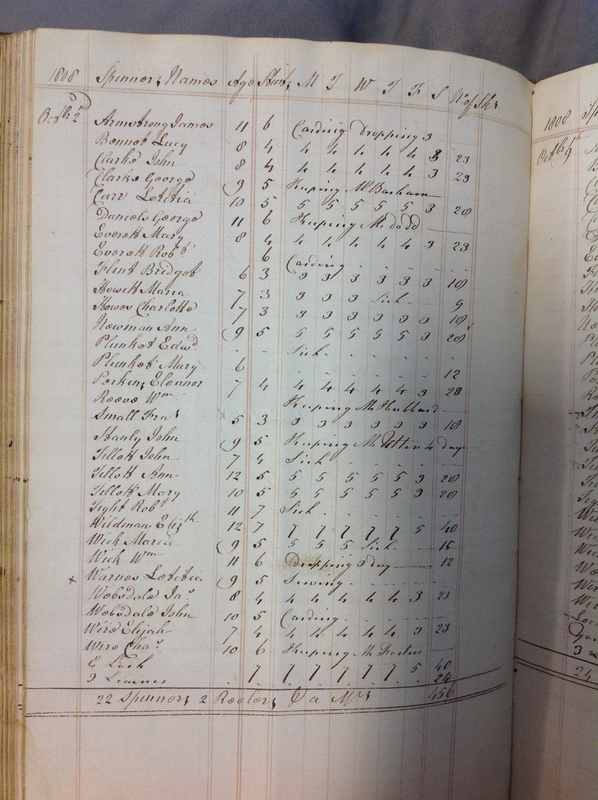 1808 Spinners Names Age Stint M T W T F S No of Sks
Octbr 2nd
Armstrong James 11 6 Carding Dropping 3
Bennet Lucy 8 4 4 4 4 4 4 3 23
Clarke John 8 4 4 4 4 4 4 3 23
Clarke George 9 5 Keeping Mr Barham
Carr Letitia 10 5 5 5 5 5 5 3 28
Daniels George 11 6 Keeping Mr Dodd
Everett Mary 8 4 4 4 4 4 4 3 23
Everett Robt 6 Carding
Flint Bridget 6 3 3 3 3 3 3 3 18
Howett Maria 7 3 3 3 3 Sick 9
Howes Charlotte 7 3 3 3 3 3 3 3 18
Newman Ann 9 5 5 5 5 5 5 3 28
Plunket Edwd - - Sick
Plunket Mary 6 12
Perkins Eleanor 7 4 4 4 4 4 4 3 23
Reeve Wm Keeping Mr Hubbard
Small Fras 5 3 3 3 3 3 3 3 18
Stanly John 9 5 Keeping Mr 4 days
Tillett John 7 4 Sick
Tillett Ann 12 5 5 5 5 5 5 3 28
Tillett Mary 10 5 5 5 5 5 5 3 28
Tight Robt 11 7 Sick
Wildman Elizth 12 7 7 7 7 7 7 5 40
Wick Maria 9 5 5 5 5 Sick 15
Wick Wm 11 6 Dropping 3 day 12
x Warnes Letitia 9 5 Sewing
Websdale Jas 8 4 4 4 4 4 4 3 23
Websdale John 10 5 Carding
Wire Elijah 7 4 4 4 4 4 4 3 23
Wire Chas 10 6 Keeping Mr
E Lock 7 7 7 7 7 7 5 40
2 Learners 24
22 Spinners 2 Reelers 456
1808 Sp
Octbr 9th
24